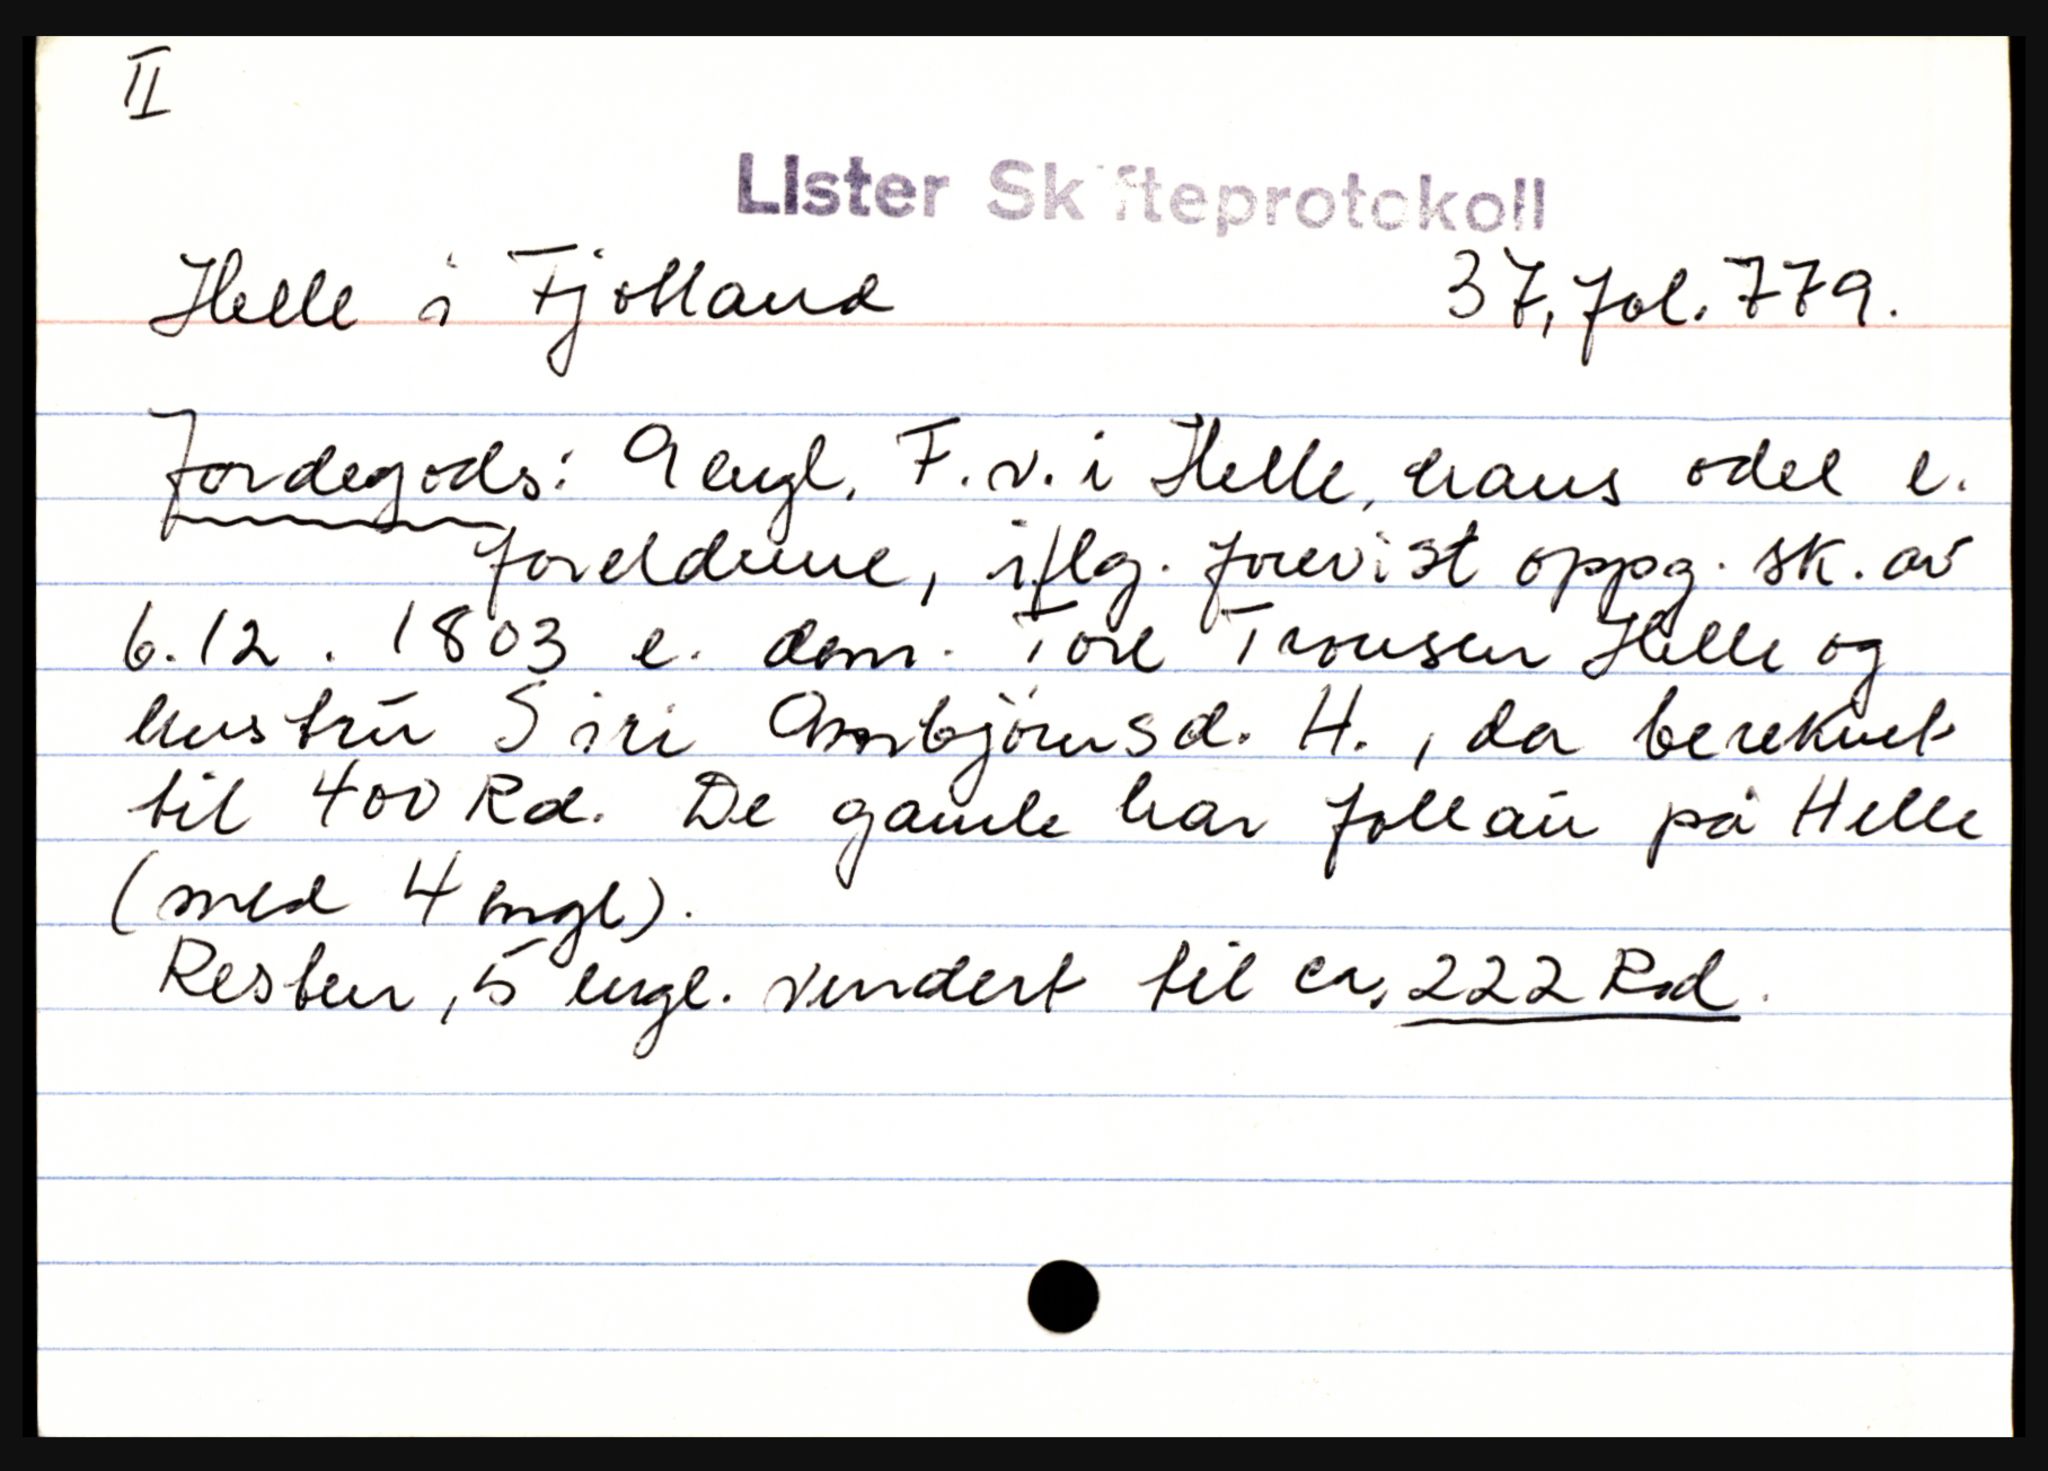 II
LIster Skifteprotokoll
Helle i Fjotland 37, fol. 779.
Jordegods: 9 engl. F. v. i Helle, hans odel e.
foreldrene, iflg. forevist oppg. sk. av
6.12. 1803 e. dem. Tore Tronsen Helle og
hustru Siri Ambjørnsd. H., da bereknet
til 400 Rd. De gamle har follau på Helle
(med 4 engl).
Resten, 5 engl. vurdert til ca. 222 Rd.